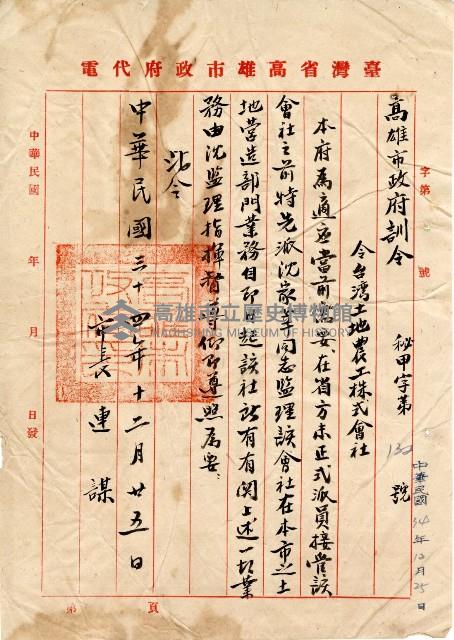 臺灣省高雄市政府代電
字第 號
高雄市政府訓令
秘甲字第 132 號
中華民國 34 年 12 月 25 日
令台湾土地農工株式會社
本府為適应當前需要、在省方未正式派員接管該
會社之前特先派沈家 同志監理該會社在本市之土
地營造部門業務自即日起該社所有有関上述一切業
務由沈監理指揮督導仰即遵照為要:
此令
中華民國三十四年十二月廿五日
市長 連謀
中華民國 年 月 日發
第 頁
高雄市立歷史博物館
KAOHSIUNG MUSEUM OF HISTORY